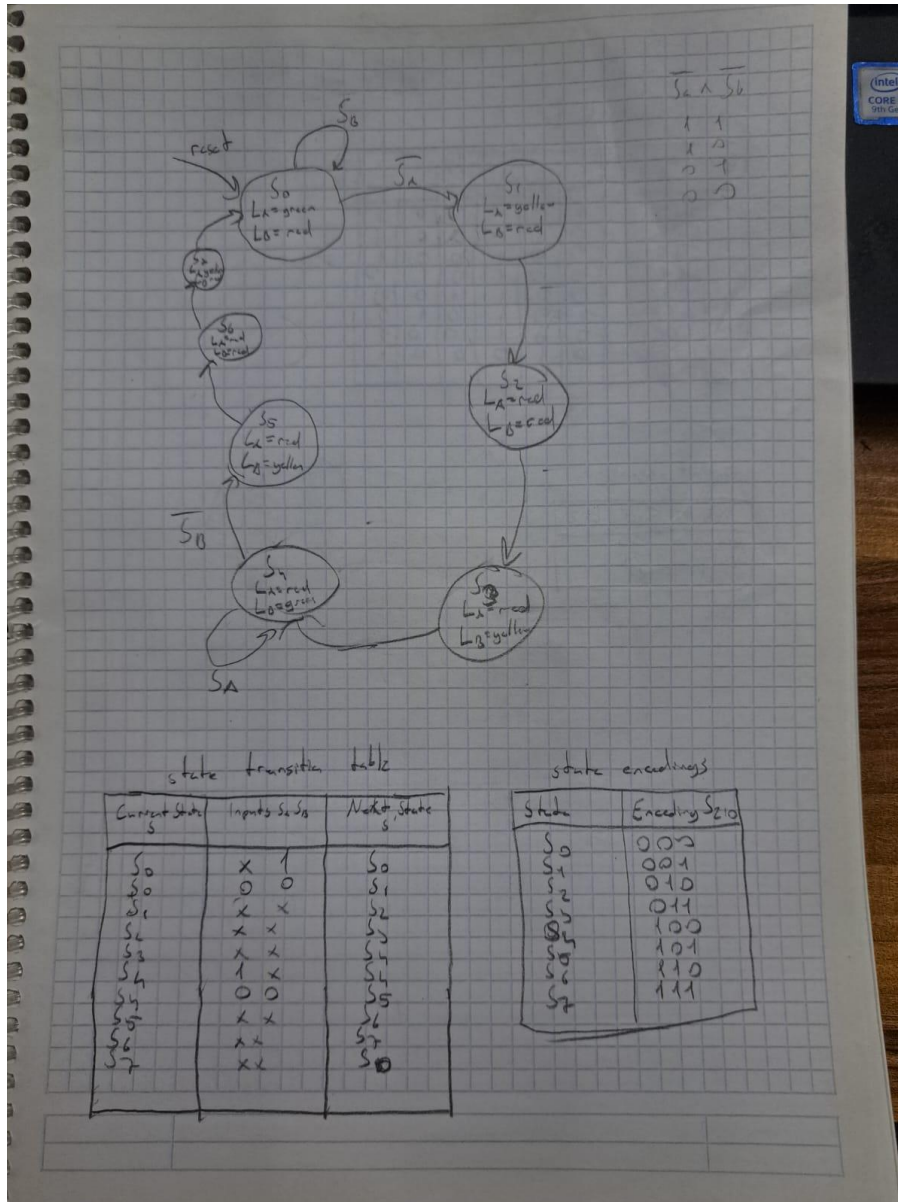 S̅a ∧ S̅b
1 1
1 0
0 1
0 0
intel
CORE
9th Ge
reset
S_B
S0
L_A=green
L_B=red
S̅_A
S1
L_A=yellow
L_B=red
S2
L_A=red
L_B=red
L_A=red
L_B=yellow
S_A
S4
L_A=red
L_B=green
S̅_B
S5
L_A=red
L_B=yellow
S6
L_A=red
L_B=red
state transition table
Current State S | Inputs Sa Sb | Next State S
S0 | x 1 | S0
S0 | 0 0 | S1
S1 | x x | S2
S2 | x x | S3
S3 | x x | S5
S5 | 1 x | S5
S5 | 0 0 | S5
S5 | x x | S6
S6 | x x | S7
S7 | x x | S0
state encodings
State | Encoding S2:0
S0 | 000
S1 | 001
S2 | 010
S3 | 011
100
101
S6 | 110
S7 | 111